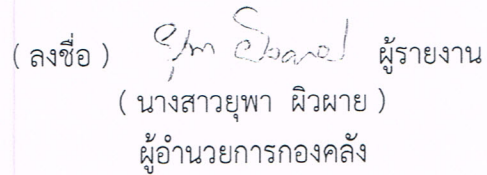 ( ลงชื่อ ) ยุพา ผิวผาย ผู้รายงาน
( นางสาวยุพา ผิวผาย )
ผู้อำนวยการกองคลัง